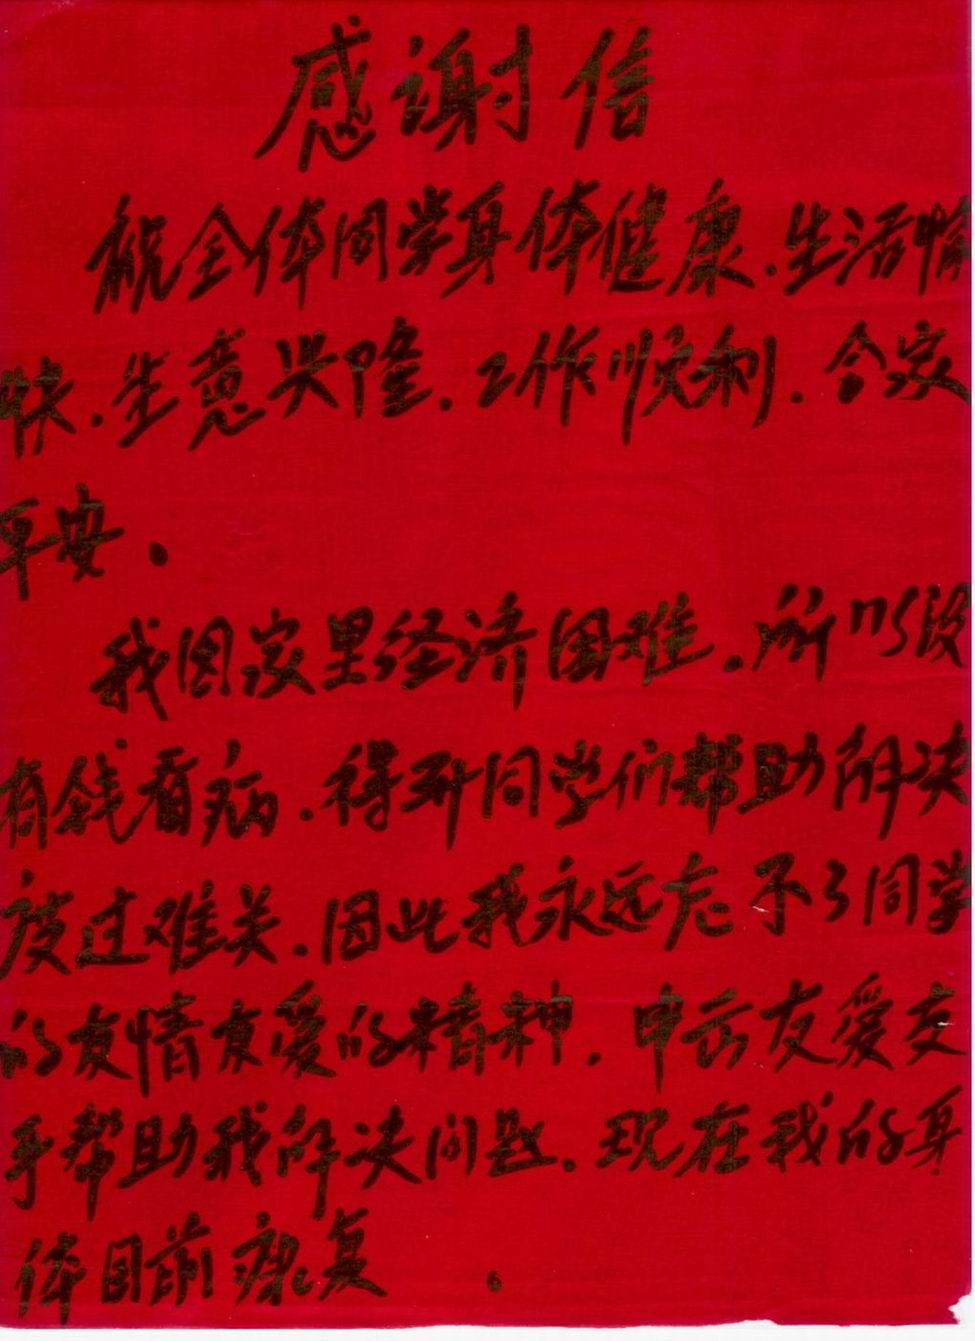 感谢信
祝全体同学身体健康.生活愉
快.生意兴隆.工作顺利.合家
平安.
我因家里经济困难.所以没
有钱看病.得到同学们帮助解决
度过难关.因此我永远忘不了同学
的友情友爱的精神.申云友爱交
手帮助我解决问题.现在我的身
体目前康复.